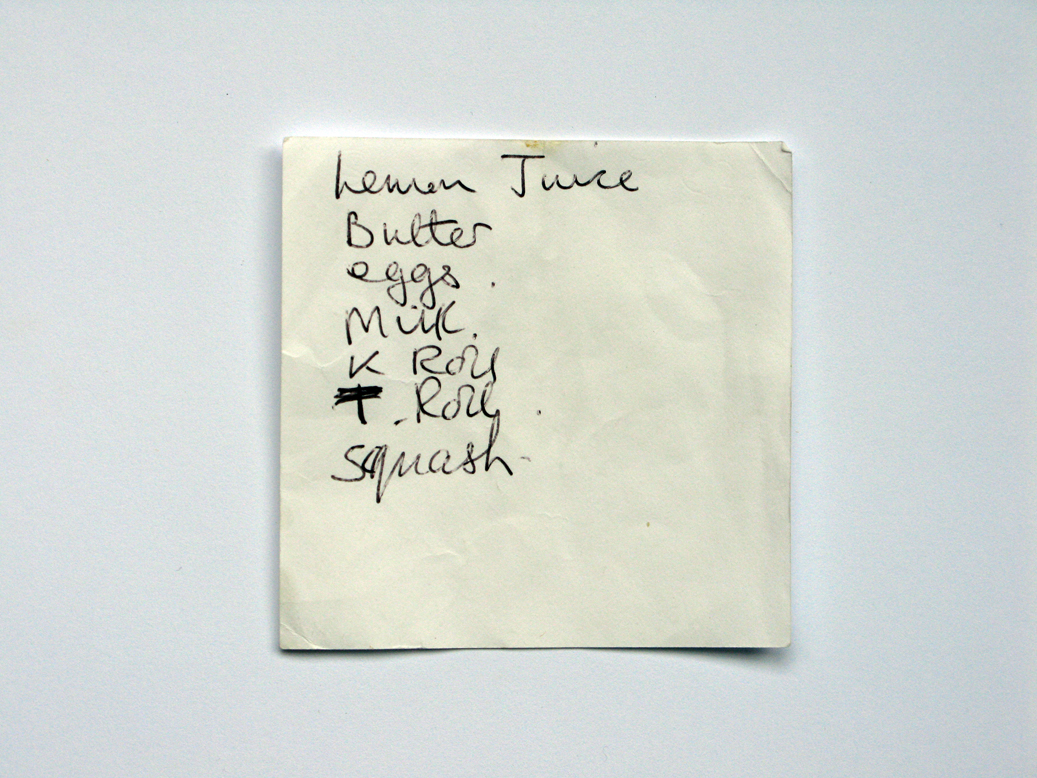 Lemon Juice
Butter
eggs.
Milk.
K Roll
T. Roll.
Squash-